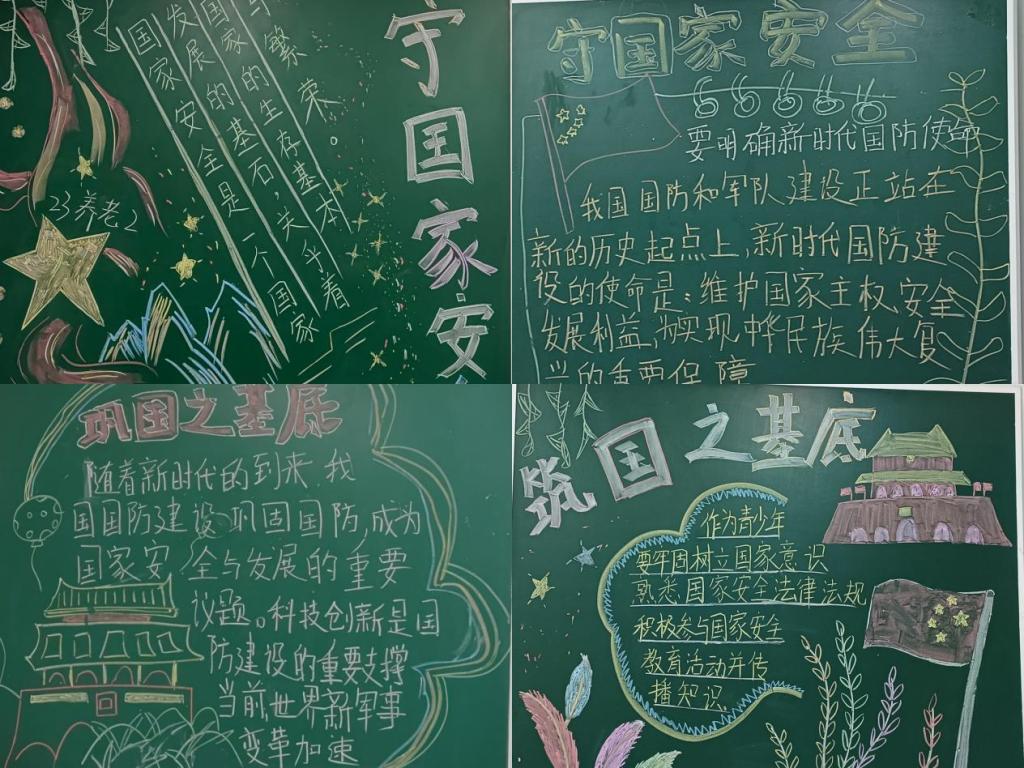 守国家安
国家安全是一个国家
发展的基石，关乎着
国家的生存基本
繁荣。
23养老2
守国家安全
要明确新时代国防使命
我国国防和军队建设正站在
新的历史起点上，新时代国防建
设的使命是：维护国家主权、安全
发展利益，为实现中华民族伟大复
兴的重要保障
巩国之基底
随着新时代的到来 我
国国防建设巩固国防,成为
国家安全与发展的重要
议题。科技创新是国
防建设的重要支撑
当前,世界新军事
变革加速
筑国之基底
作为青少年
要牢固树立国家意识
熟悉国家安全法律法规
积极参与国家安全
教育活动并传
播知识